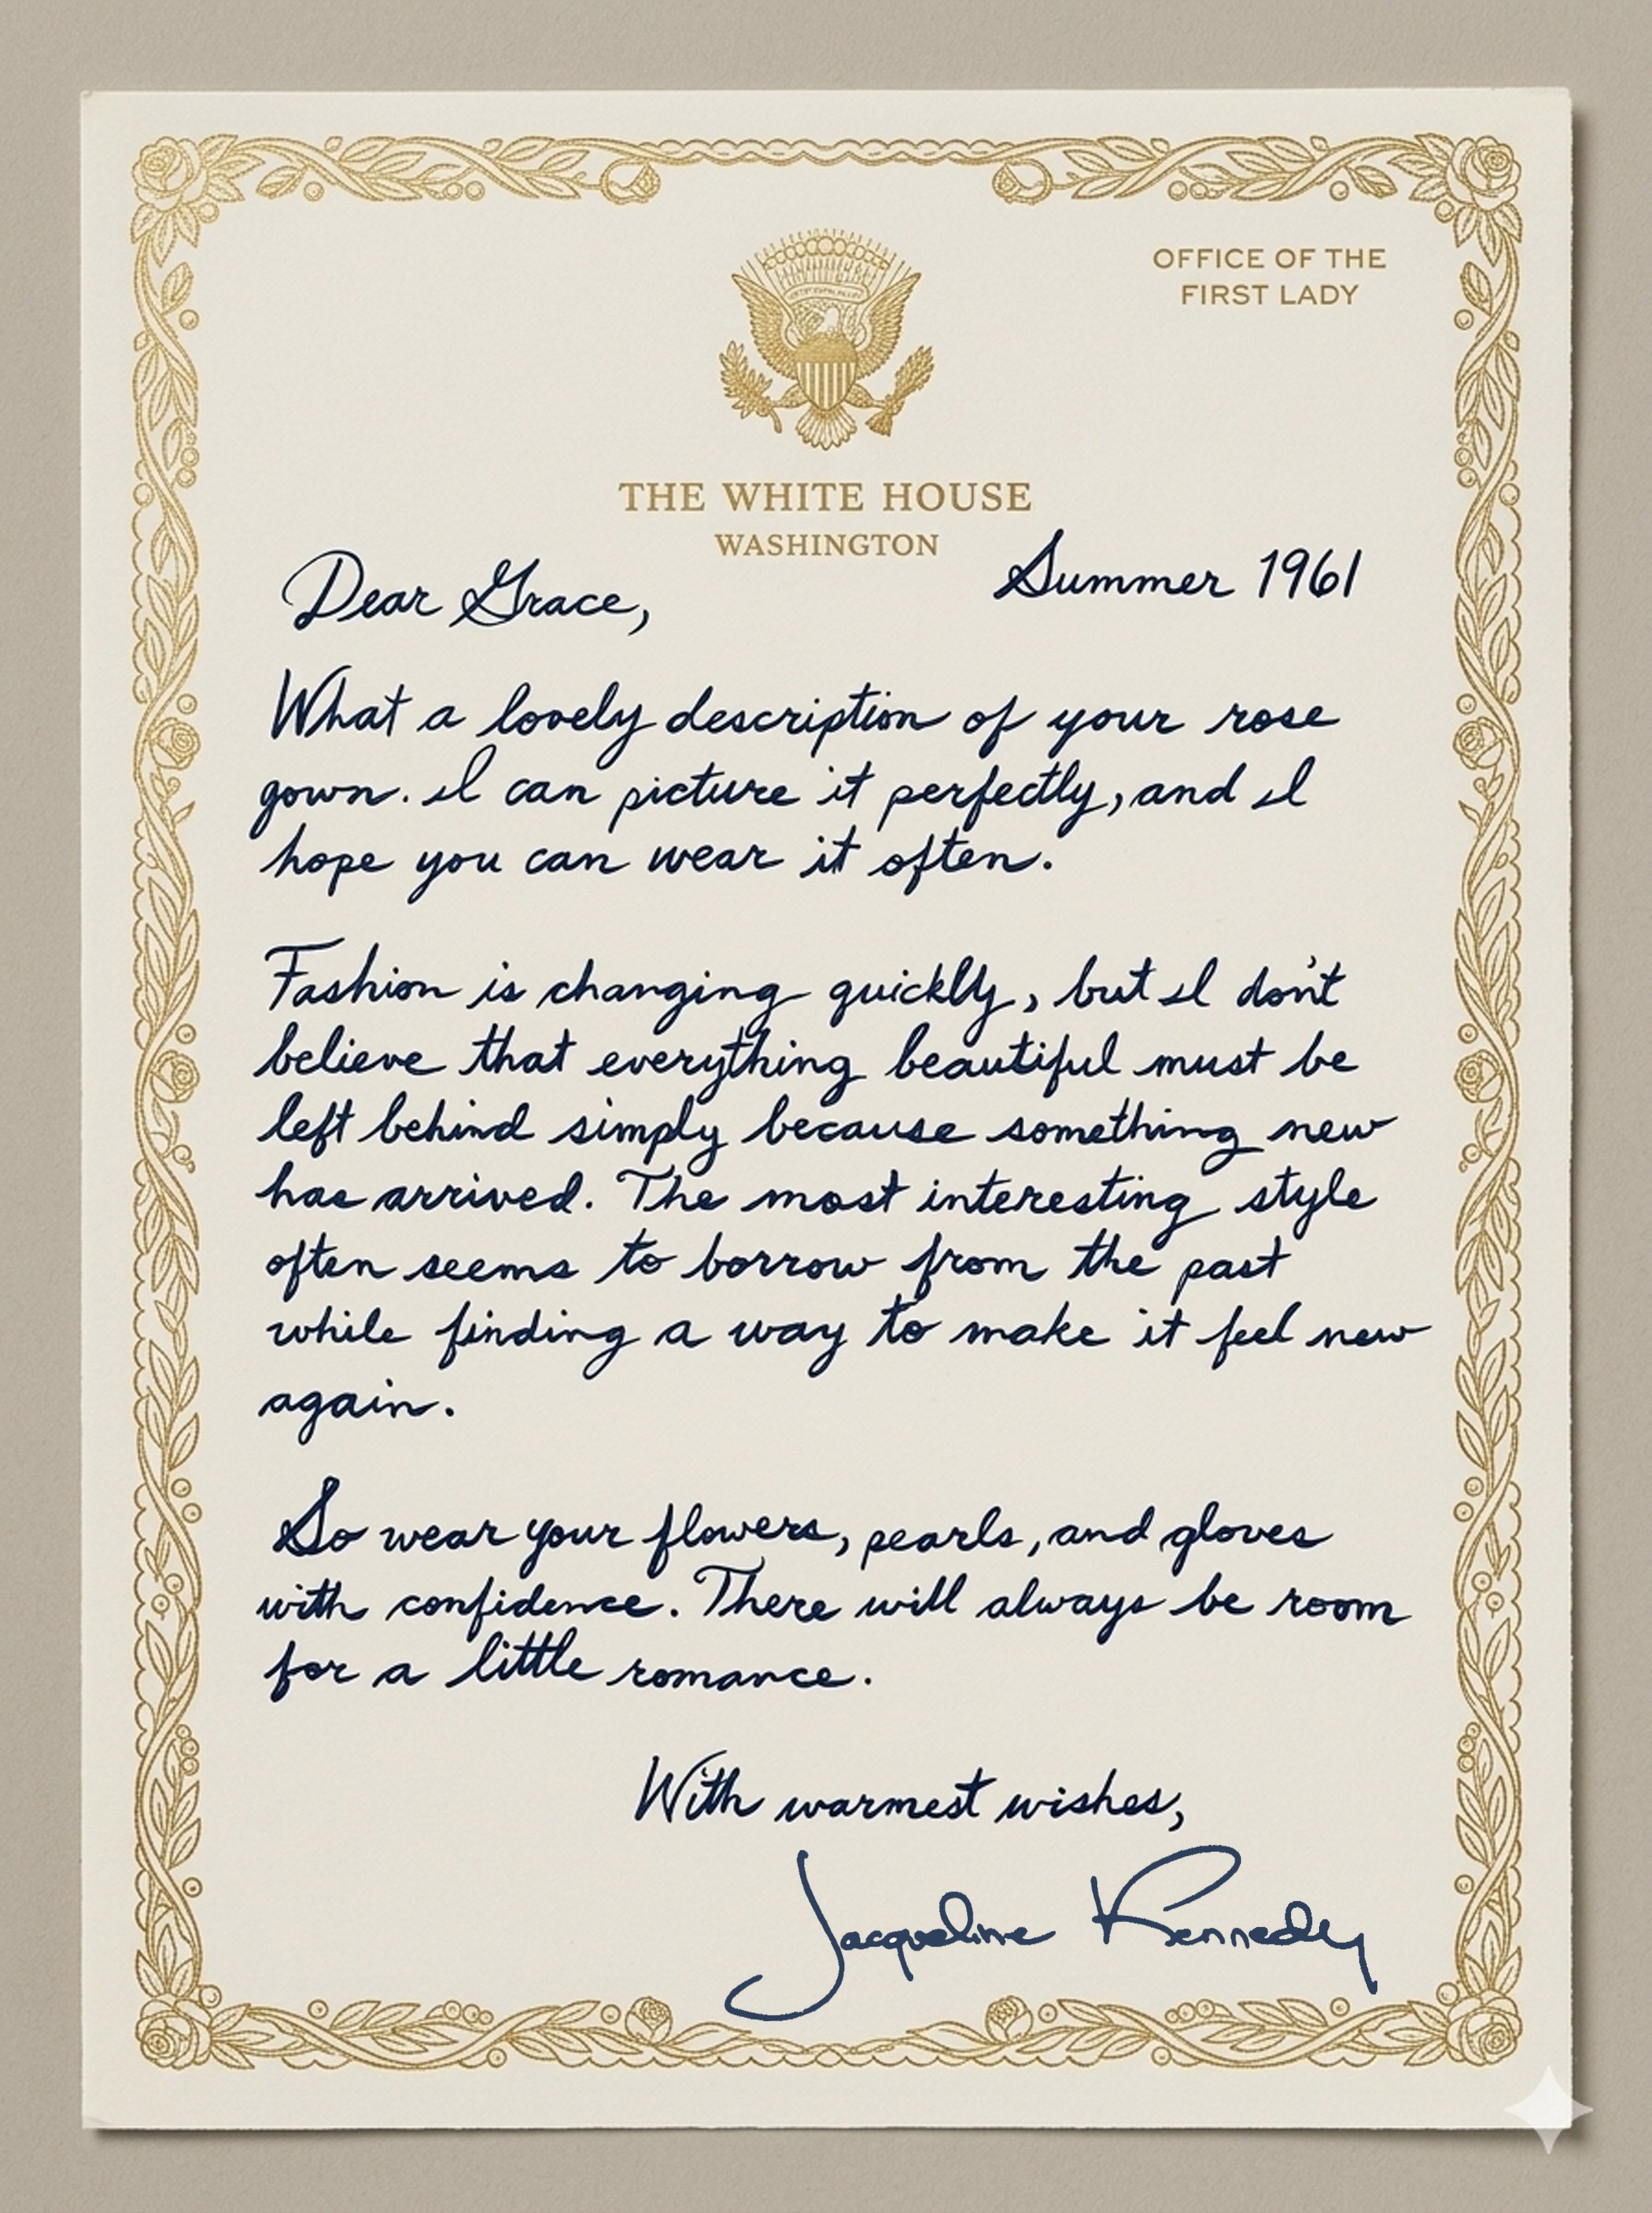 OFFICE OF THE
FIRST LADY
THE WHITE HOUSE
WASHINGTON
Summer 1961
Dear Grace,
What a lovely description of your rose
gown. I can picture it perfectly, and I
hope you can wear it often.
Fashion is changing quickly, but I don't
believe that everything beautiful must be
left behind simply because something new
has arrived. The most interesting style
often seems to borrow from the past
while finding a way to make it feel new
again.
So wear your flowers, pearls, and gloves
with confidence. There will always be room
for a little romance.
With warmest wishes,
Jacqueline Kennedy